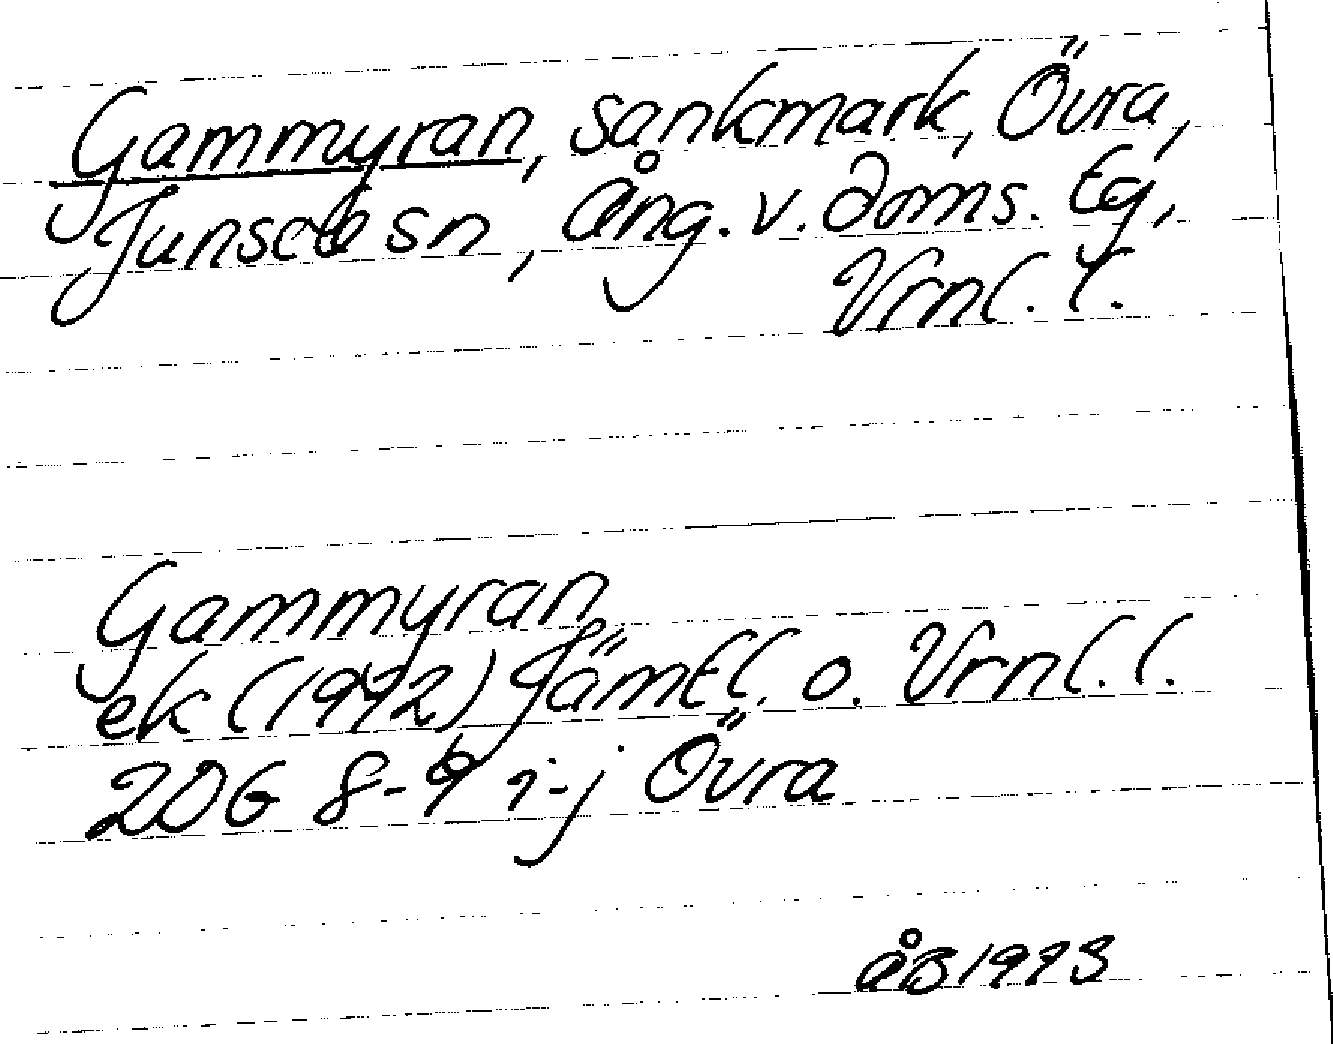 Gammyran, sankmark, Övra,
Junsele sn, Ång. v. doms. tg,
Vrnl. l.
Gammyran
ek (1972) Jämtl. o. Vrnl. l.
20G 8-9 i-j Övra
åB 1973